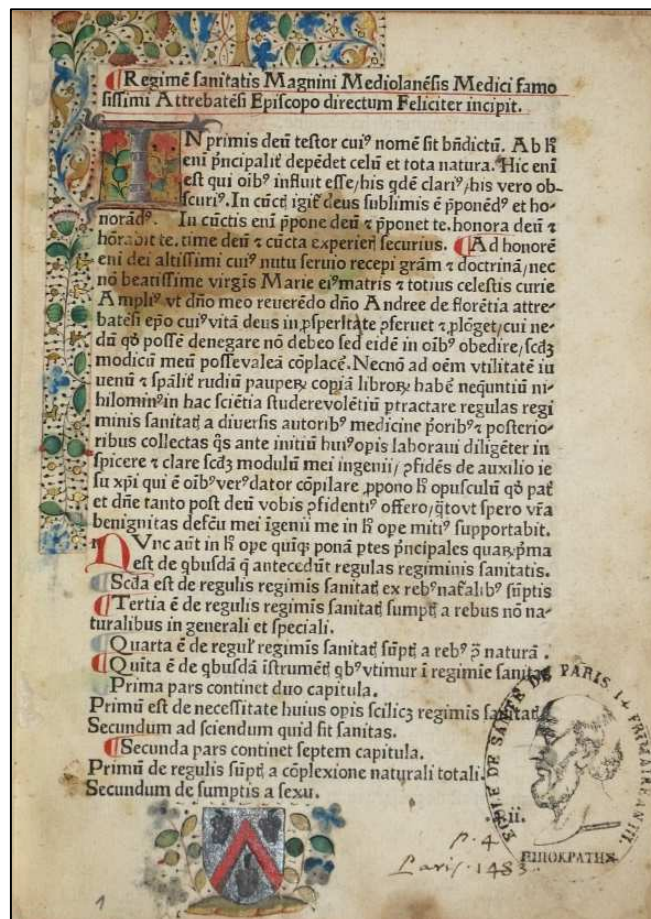 ¶Regimē sanitatis Magnini Mediolanēsis Medici famo
sissimi Attrebatēsi Episcopo directum Feliciter incipit.
IN primis deū testor cuiꝰ nomē sit bn̄dictū. Ab h̄
eni p̄ncipalit̄ depēdet celū et tota natura. Hic eni
est qui oib̄ꝰ influit esse/his qdē clariꝰ/his vero ob-
scuriꝰ. In cūctꝭ igit̄ deus sublimis ē p̄ponēdꝰ et ho-
norādꝰ. In cūctis eni p̄pone deū ⁊ p̄ponet te. honora deū ⁊
hōrabit te. time deū ⁊ cūcta experierꝭ securius. ¶Ad honorē
eni dei altissimi cuiꝰ nutu seruio recepi grām ⁊ doctrinā/nec
nō beatissime virgīs Marie eiꝰmatris ⁊ totius celestis curie
Ampliꝰ vt dn̄o meo reuerēdo dn̄o Andree de florētia attre-
batēsi ep̄o cuiꝰvitā deus in ꝓsperitate ꝓseruet ⁊ ꝓlōget/cui ne-
dū qd̄ possē denegare nō debeo sed eidē in oīb̄ꝰ obedire/scdꝫ
modicū meū posse valeā cōplacē. Necnō ad oēm vtilitatē iu
uenū ⁊ sp̄alit̄ rudiū pauperꝝ copiā librorꝝ habē neqūntiū ni-
hilominꝰin hac sciētia studere volētiū ptractare regulas regi
minis sanitatꝭ a diuersis autoribꝰ medicine p̄oribꝰ ⁊ posterio-
ribus collectas q̄s ante initiū huiꝰopis laboraui diligēter in
spicere ⁊ clare scdꝫ modulū mei ingenii/ ꝯfidēs de auxilio ie
su xp̄i qui ē oīb̄ꝰverꝰdator cōpilare ꝓpono h̄ opusculū qd̄ pat̄
et dn̄e tanto post deū vobis ꝯfidentiꝰ offero/q̄tovt spero vr̄a
benignitas defc̄u mei īgenii me in h̄ ope mitiꝰ supportabit.
NVnc aūt in h̄ ope quīqꝫ ponā ptes p̄ncipales quarꝝ p̄ma
est de qbusdā q̄ antecedūt regulas regiminis sanitatis.
¶Scd̄a est de regulis regimīs sanitatꝭ ex rebꝰnat̄alibꝰ sūptis
¶Tertia ē de regulis regimīs sanitatꝭ sumptꝭ a rebus nō na-
turalibus in generali et speciali.
¶Quarta ē de regul̄ regimīs sanitatꝭ sūptꝭ a rebꝰ p̄ naturā.
¶Quīta ē de qbusdā īstrumētꝭ qbꝰ vtimur ī regimīe sanitatꝭ
Prima pars continet duo capitula.
Primū est de necessitate huius opis scilicꝫ regimīs sanitatꝭ
Secundum ad sciendum quid sit sanitas.
¶Secunda pars continet septem capitula.
Primū de regulis sūptꝭ a cōplexione naturali totali.
Secundum de sumptis a sexu.
.ii.
ECOLE DE SANTE DE PARIS 14 FRIMAIRE AN III.
ΙΠΠΟΚΡΑΤΗΣ
p. 4
Paris. 1483
1